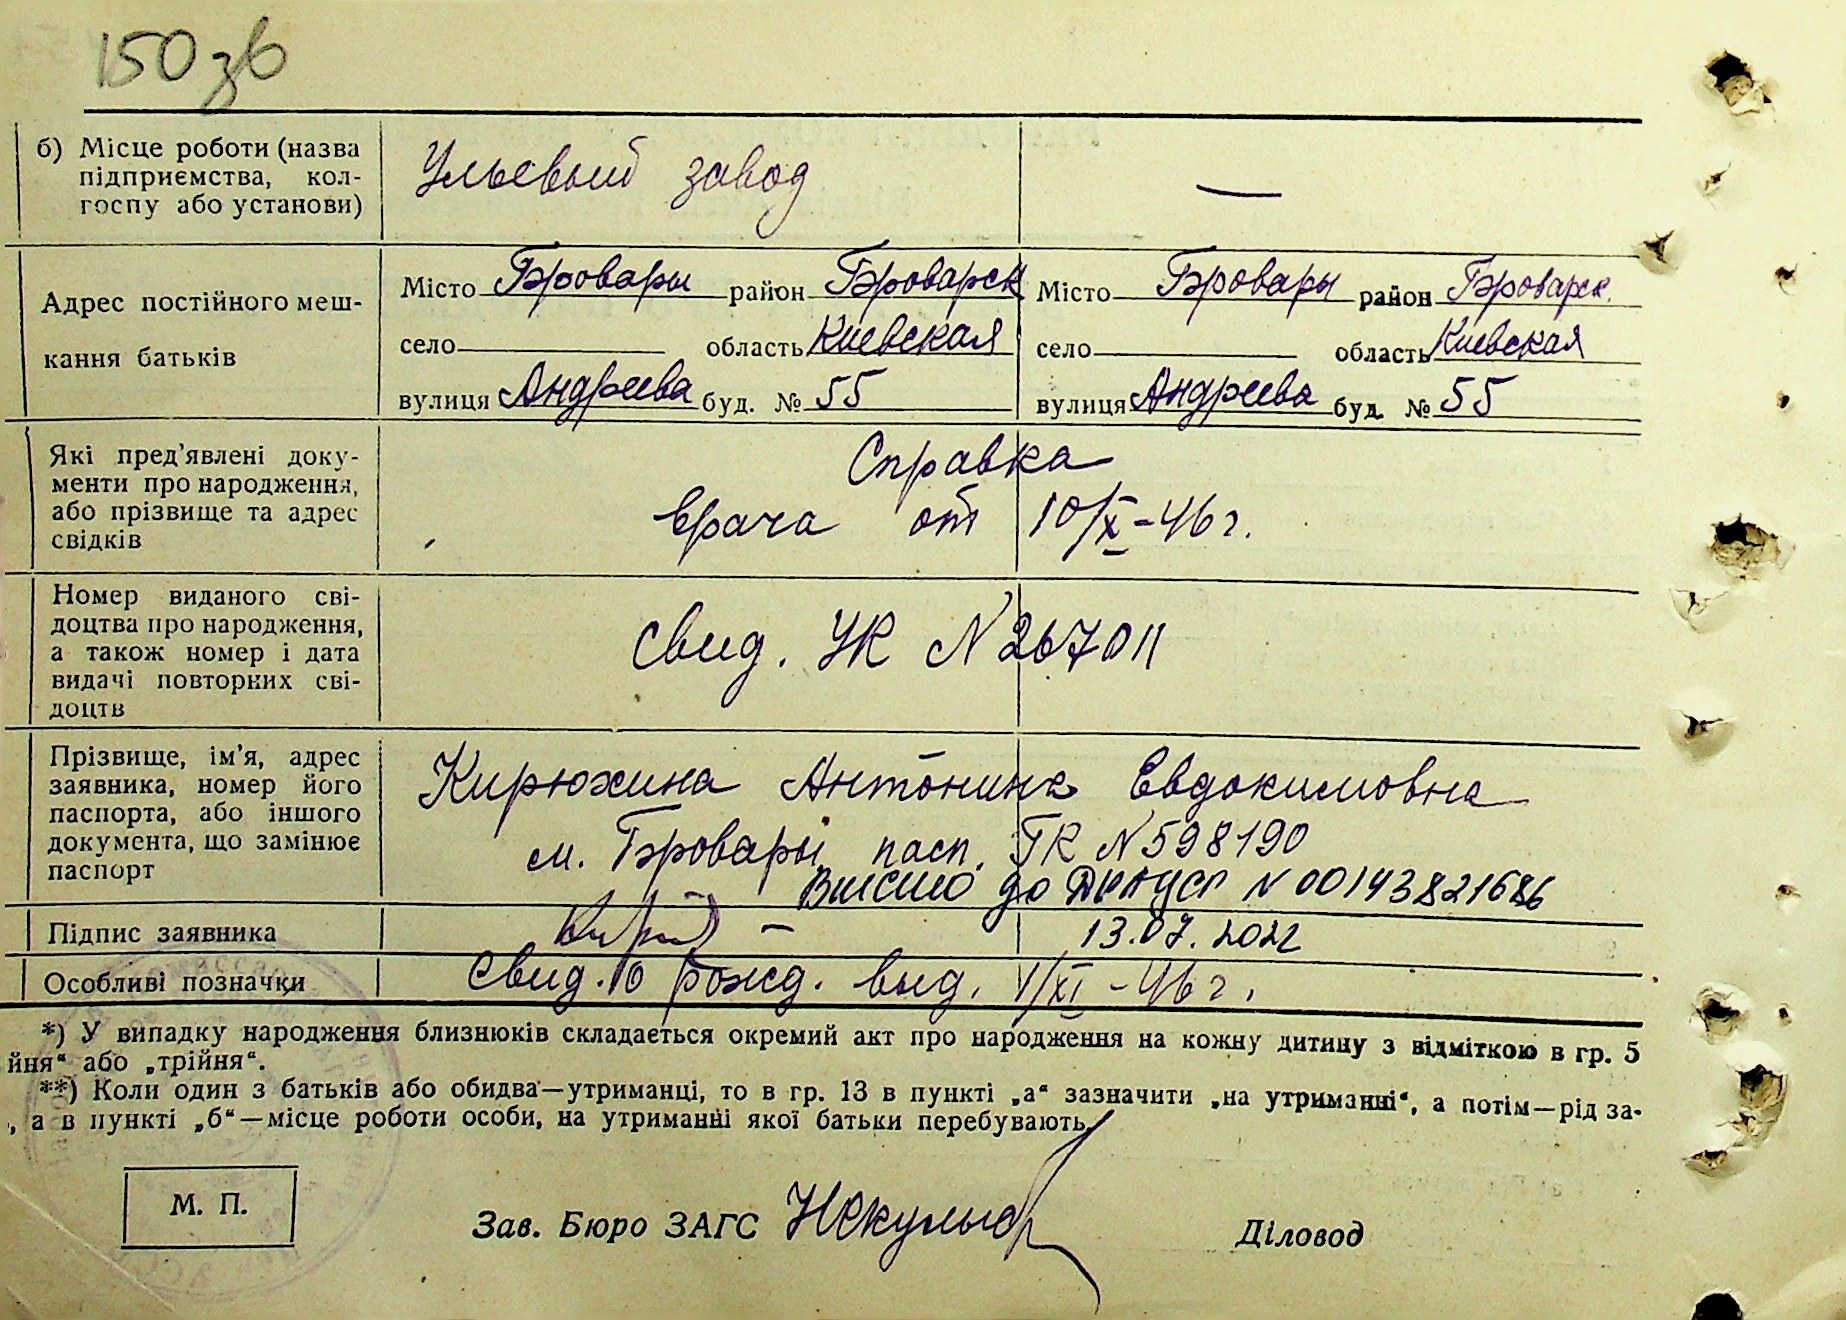 150зв
б) Місце роботи (назва
підприємства, кол-
госпу або установи)
Ульевый завод
—
Адрес постійного меш-
кання батьків
Місто Бровары район Броварск
село область Киевская
вулиця Андреева буд. № 55
Місто Бровары район Броварск.
село область Киевская
вулиця Андреева буд. № 55
Які пред'явлені доку-
менти про народження,
або прізвище та адрес
свідків
Справка
врача от 10/X-46 г.
Номер виданого сві-
доцтва про народження,
а також номер і дата
видачі повторних сві-
доцтв
Свид. УК N 267011
Прізвище, ім'я, адрес
заявника, номер його
паспорта, або іншого
документа, що замінює
паспорт
Кирюхина Антонина Евдокимовна
м. Бровары, пасп. ТК N 598190
Внесено до ДРАЦСГ N 00143821686
Підпис заявника
13.07.2022
Особливі позначки
Свид. о рожд. выд. 1/XI-46 г.
*) У випадку народження близнюків складається окремий акт про народження на кожну дитину з відміткою в гр. 5
йня“ або „трійня“.
**) Коли один з батьків або обидва—утриманці, то в гр. 13 в пункті „а“ зазначити „на утриманні“, а потім—рід за-
, а в пункті „б“—місце роботи особи, на утриманні якої батьки перебувають.
М. П.
Зав. Бюро ЗАГС
Діловод